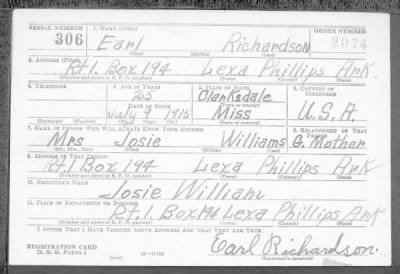 SERIAL NUMBER 1. NAME (Print) ORDER NUMBER
306 Earl Richardson 2074
(First) (Middle) (Last)
2. ADDRESS (Print)
Rt.1. Box 194 Lexa Phillips Ark.
(Number and street or R. F. D. number) (Town) (County) (State)
3. TELEPHONE 4. AGE IN YEARS 5. PLACE OF BIRTH 6. COUNTRY OF CITIZENSHIP
25 Clarksdale
DATE OF BIRTH (Town or county)
July 9 1915 Miss U.S.A.
(Exchange) (Number) (Mo.) (Day) (Yr.) (State or country)
7. NAME OF PERSON WHO WILL ALWAYS KNOW YOUR ADDRESS 8. RELATIONSHIP OF THAT PERSON
Mrs Josie Williams G. Mother
(Mr., Mrs., Miss) (First) (Middle) (Last)
9. ADDRESS OF THAT PERSON
Rt.1 Box 194 Lexa Phillips Ark
(Number and street or R. F. D. number) (Town) (County) (State)
10. EMPLOYER'S NAME
Josie William
11. PLACE OF EMPLOYMENT OR BUSINESS
Rt.1. Box 194 Lexa Phillips Ark
(Number and street or R. F. D. number) (Town) (County) (State)
I AFFIRM THAT I HAVE VERIFIED ABOVE ANSWERS AND THAT THEY ARE TRUE.
REGISTRATION CARD
D. S. S. Form 1 (over) Earl Richardson.
(Registrant's signature)